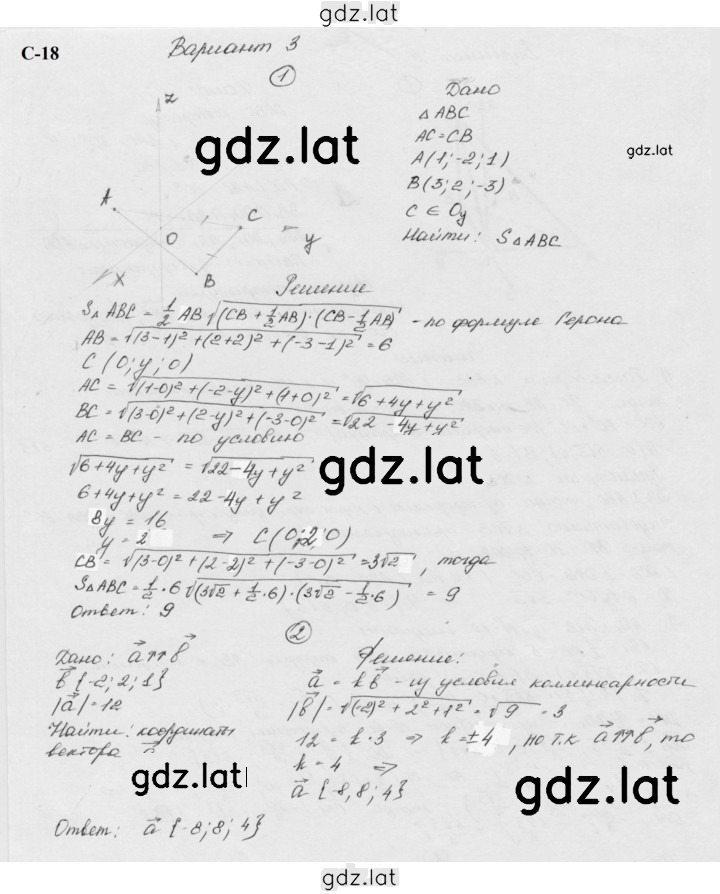 gdz.lat
С-18
Вариант 3
1
z
A
O
C
y
X
B
gdz.lat
Дано
△ABC
AC=CB
A(1;-2;1)
B(3;2;-3)
C ∈ Oy
Найти: S△ABC
gdz.lat
Решение
S△ABC = 1/2 AB√((CB + 1/2 AB)·(CB - 1/2 AB)) - по формуле Герона
AB = √((3-1)² + (2+2)² + (-3-1)²) = 6
C (0; y; 0)
AC = √((1-0)² + (-2-y)² + (1+0)²) = √(6+4y+y²)
BC = √((3-0)² + (2-y)² + (-3-0)²) = √(22-4y+y²)
AC = BC - по условию
√(6+4y+y²) = √(22-4y+y²)
6+4y+y² = 22-4y+y²
8y = 16
y = 2 ⇒ C(0;2;0)
CB = √((3-0)² + (2-2)² + (-3-0)²) = 3√2, тогда
S△ABC = 1/2·6 √((3√2 + 1/2·6)·(3√2 - 1/2·6)) = 9
Ответ: 9
gdz.lat
2
Дано: a⃗↑↑b⃗
b⃗ {-2; 2; 1}
|a⃗| = 12
Найти: координаты
вектора a⃗
gdz.lat
Решение:
a⃗ = k b⃗ - из условия коллинеарности
|b⃗| = √((-2)² + 2² + 1²) = √9 = 3
12 = k·3 ⇒ k = ±4, но т.к a⃗↑↑b⃗, то
k = 4 ⇒
a⃗ {-8; 8; 4}
gdz.lat
Ответ: a⃗ {-8; 8; 4}
gdz.lat